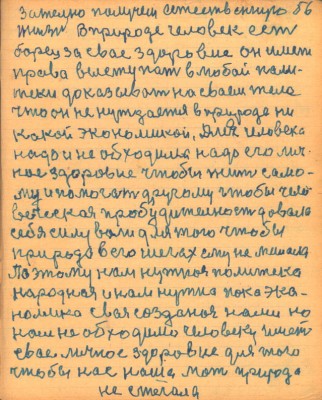 зателно получем естественную 56
жизт В природе человек ест
борец за свае здоровие он имеет
права выступат в любой поли-
теки доказыват на своем тела
что он не нуждается в природе ни
какой экономикой, Для человека
надо и не обходима надо его лич-
ное здоровие чтобы жит само-
му и помогат другому чтобы чело-
веческая пробудителност довала
себя силу воли для того чтобы
природа в его шегах ему не мешала
Поэтому нам нужноя политека
народная и нам нужна пока эко-
номика своя созданоя нами но
нам не обходима человеку имет
свае личное здоровие для того
чтобы нас наша мат природа
не стегала